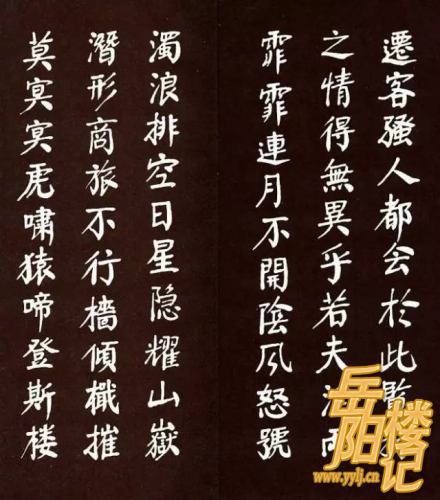 遷客騷人都会於此覧
之情得無異乎若夫雨
霏霏連月不開陰风怒號
濁浪排空日星隐耀山嶽
潛形商旅不行檣傾檝摧
莫冥冥虎嘯猿啼登斯楼
岳阳楼记
www.yylj.cn